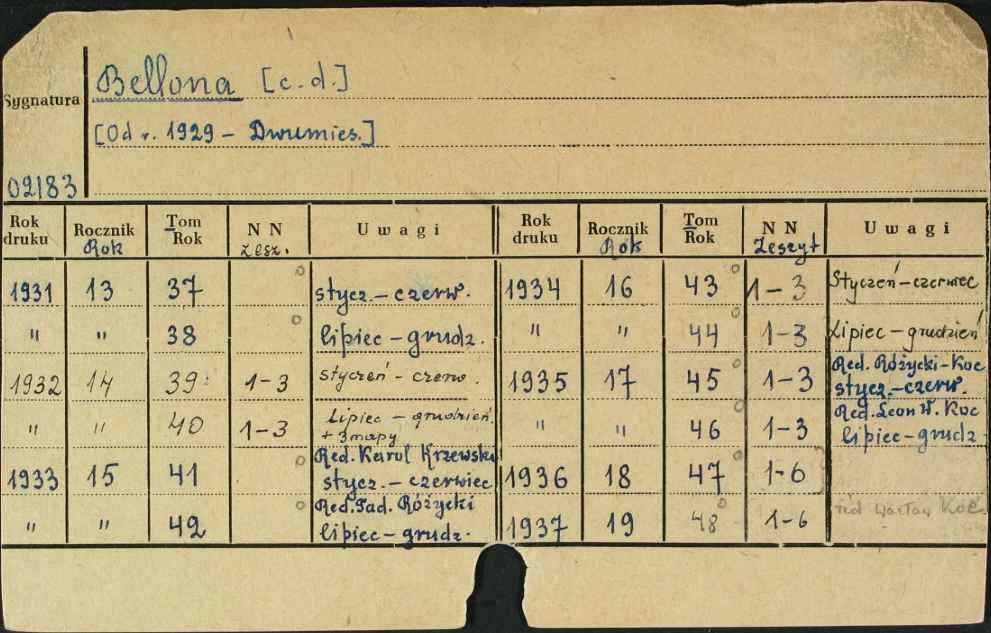 Bellona [c.d.]
Sygnatura
[Od r. 1929 – Dwumies.]
02183
Rok druku Rocznik Rok Tom Rok N N zesz. Uwagi Rok druku Rocznik Rok Tom Rok N N Zeszyt Uwagi
1931 13 37 stycz.–czerw. 1934 16 43 1–3 Styczeń–czerwiec
" " 38 lipiec–grudz. " " 44 1–3 Lipiec–grudzień
1932 14 39 1–3 styczeń–czerw. 1935 17 45 1–3 Red. Różycki-Koc stycz.–czerw.
" " 40 1–3 Lipiec–grudzień. + 3 mapy " " 46 1–3 Red. Leon W. Koc lipiec–grudz.
1933 15 41 Red. Karol Krzewski stycz.–czerwiec 1936 18 47 1–6
" " 42 Red. Tad. Różycki lipiec–grudz. 1937 19 48 1–6 Koc.